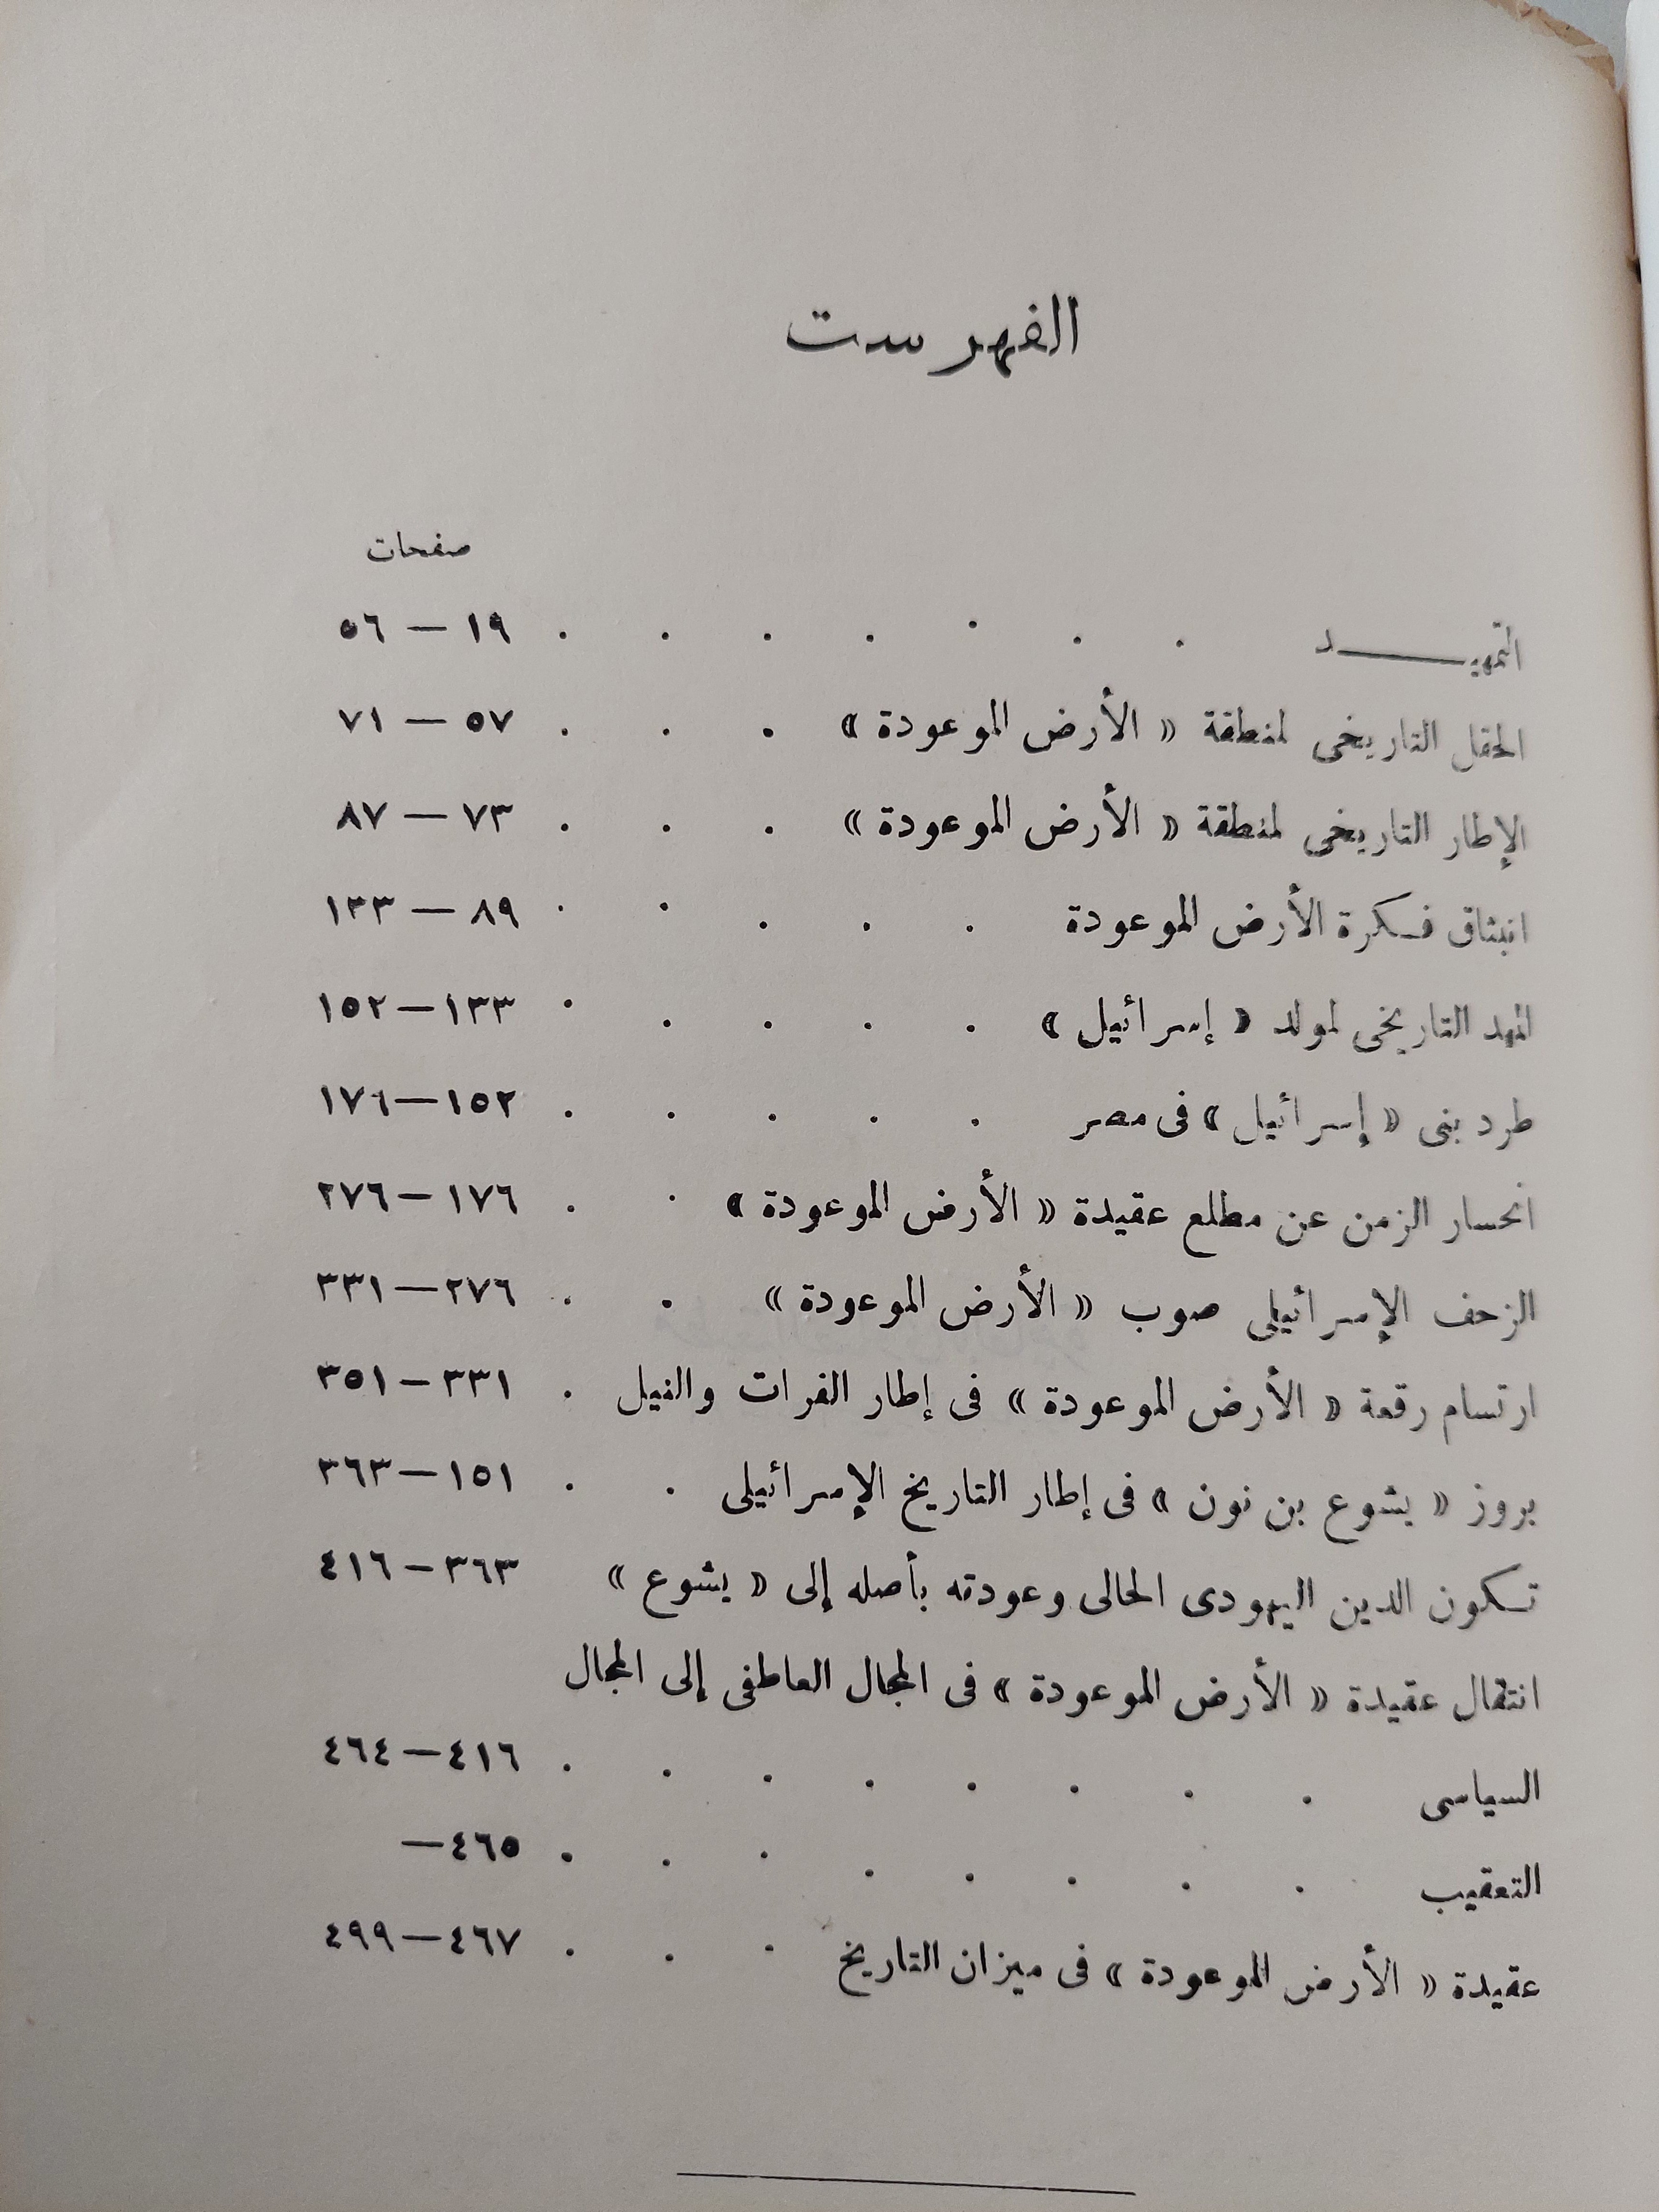 الفهرست
صفحات
التمهيـــــد . . . . . . . ١٩ — ٥٦
الحقل التاريخى لمنطقة « الأرض الموعودة » . . . ٥٧ — ٧١
الإطار التاريخى لمنطقة « الأرض الموعودة » . . . ٧٣ — ٨٧
انبثاق فكرة الأرض الموعودة . . . . . ٨٩ — ١٣٣
المهد التاريخى لمولد « إسرائيل » . . . . . ١٣٣—١٥٢
طرد بنى « إسرائيل » فى مصر . . . . . ١٥٢—١٧٦
انحسار الزمن عن مطلع عقيدة « الأرض الموعودة » . . ١٧٦—٢٧٦
الزحف الإسرائيلى صوب « الأرض الموعودة » . . ٢٧٦—٣٣١
ارتسام رقعة « الأرض الموعودة » فى إطار الفرات والنيل . ٣٣١—٣٥١
بروز « يشوع بن نون » فى إطار التاريخ الإسرائيلى . . ١٥١—٣٦٣
تكون الدين اليهودى الحالى وعودته بأصله إلى « يشوع » ٣٦٣—٤١٦
انتقال عقيدة « الأرض الموعودة » فى المجال العاطفى إلى المجال
السياسى . . . . . . . . ٤١٦—٤٦٤
التعقيب . . . . . . . . ٤٦٥—
عقيدة « الأرض الموعودة » فى ميزان التاريخ . . . ٤٦٧—٤٩٩